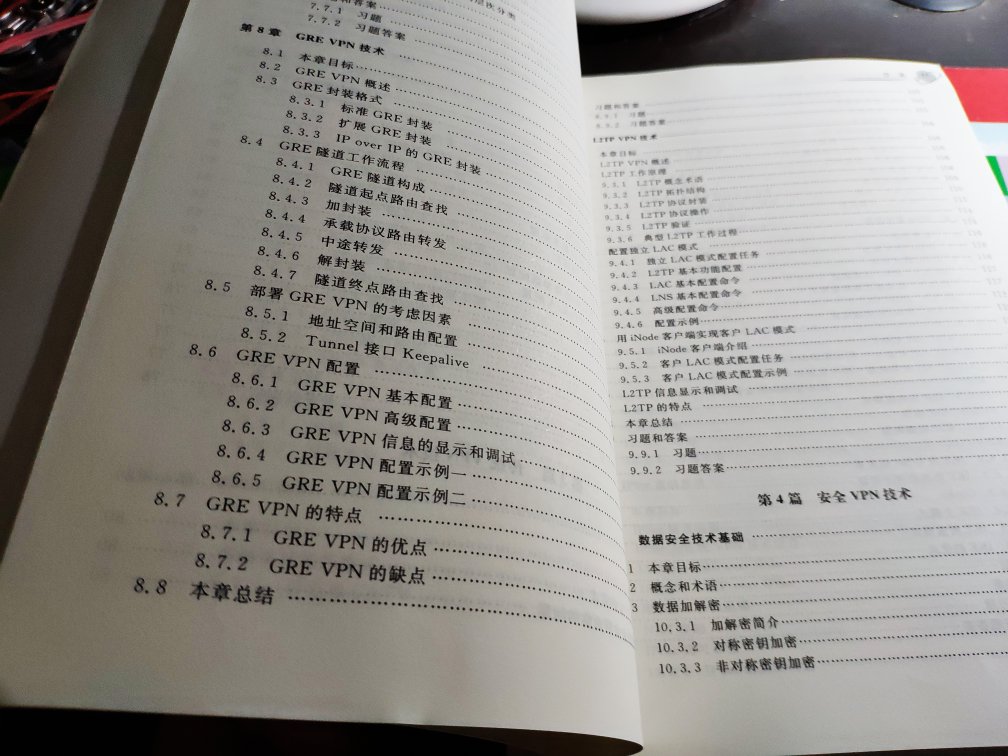 习题和答案
7.7.1 习题
7.7.2 习题答案
第8章 GRE VPN 技术
8.1 本章目标
8.2 GRE VPN 概述
8.3 GRE 封装格式
8.3.1 标准 GRE 封装
8.3.2 扩展 GRE 封装
8.3.3 IP over IP 的 GRE 封装
8.4 GRE 隧道工作流程
8.4.1 GRE 隧道构成
8.4.2 隧道起点路由查找
8.4.3 加封装
8.4.4 承载协议路由转发
8.4.5 中途转发
8.4.6 解封装
8.4.7 隧道终点路由查找
8.5 部署 GRE VPN 的考虑因素
8.5.1 地址空间和路由配置
8.5.2 Tunnel 接口 Keepalive
8.6 GRE VPN 配置
8.6.1 GRE VPN 基本配置
8.6.2 GRE VPN 高级配置
8.6.3 GRE VPN 信息的显示和调试
8.6.4 GRE VPN 配置示例一
8.6.5 GRE VPN 配置示例二
8.7 GRE VPN 的特点
8.7.1 GRE VPN 的优点
8.7.2 GRE VPN 的缺点
8.8 本章总结
习题和答案
8.9.1 习题
8.9.2 习题答案
L2TP VPN 技术
本章目标
L2TP VPN 概述
L2TP 工作原理
9.3.1 L2TP 概念术语
9.3.2 L2TP 拓扑结构
9.3.3 L2TP 协议封装
9.3.4 L2TP 协议操作
9.3.5 L2TP 验证
9.3.6 典型 L2TP 工作过程
配置独立 LAC 模式
9.4.1 独立 LAC 模式配置任务
9.4.2 L2TP 基本功能配置
9.4.3 LAC 基本配置命令
9.4.4 LNS 基本配置命令
9.4.5 高级配置命令
9.4.6 配置示例
用 iNode 客户端实现客户 LAC 模式
9.5.1 iNode 客户端介绍
9.5.2 客户 LAC 模式配置任务
9.5.3 客户 LAC 模式配置示例
L2TP 信息显示和调试
L2TP 的特点
本章总结
习题和答案
9.9.1 习题
9.9.2 习题答案
第4篇 安全 VPN 技术
数据安全技术基础
1 本章目标
2 概念和术语
3 数据加解密
10.3.1 加解密简介
10.3.2 对称密钥加密
10.3.3 非对称密钥加密